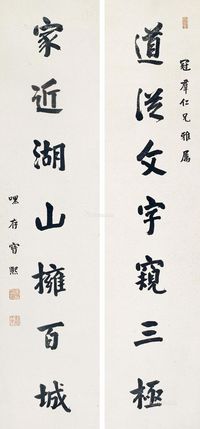 道從文字窺三極
冠群仁兄雅属
家近湖山擁百城
寶熙